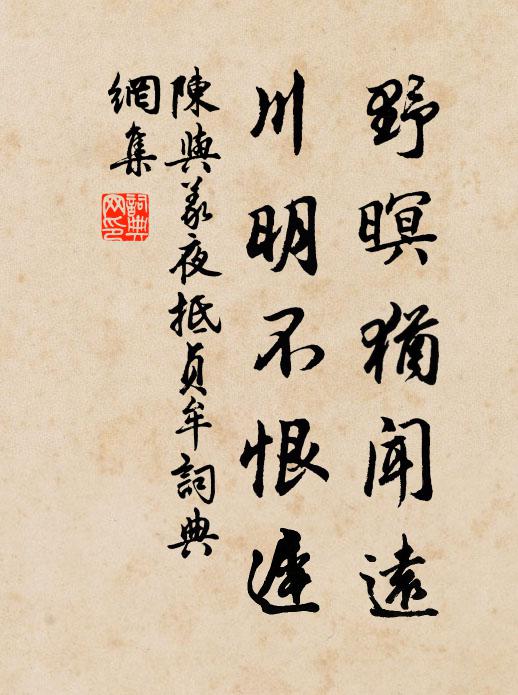 野暝猶聞遠
川明不恨遲
陳與義夜抵貞牟詞典
網集
詞典
网印